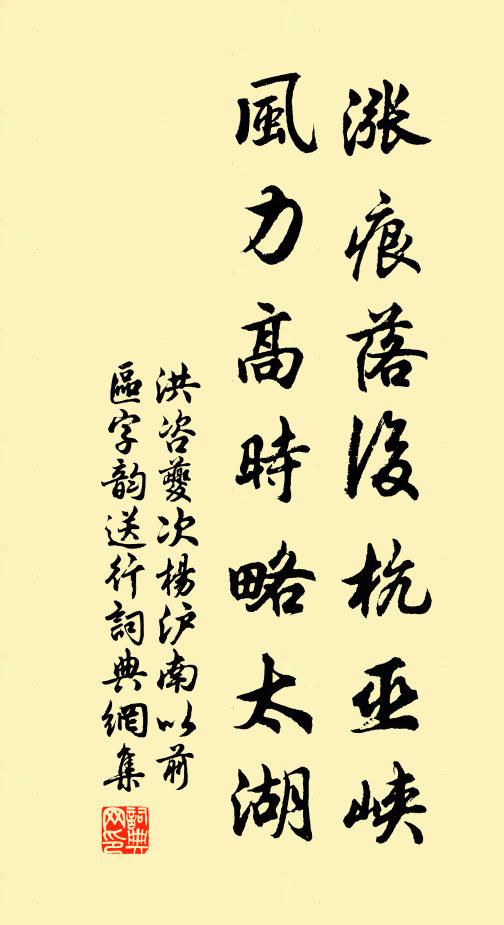 漲痕落後杭巫峽
風力高時略太湖
洪咨夔次楊沪南以前
區字韵送行詞典網集
詞典網印